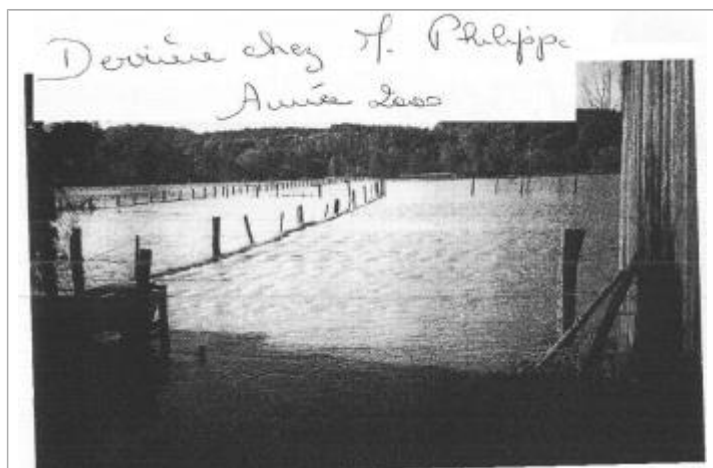 Derrière chez M. Philippe
Année 2000